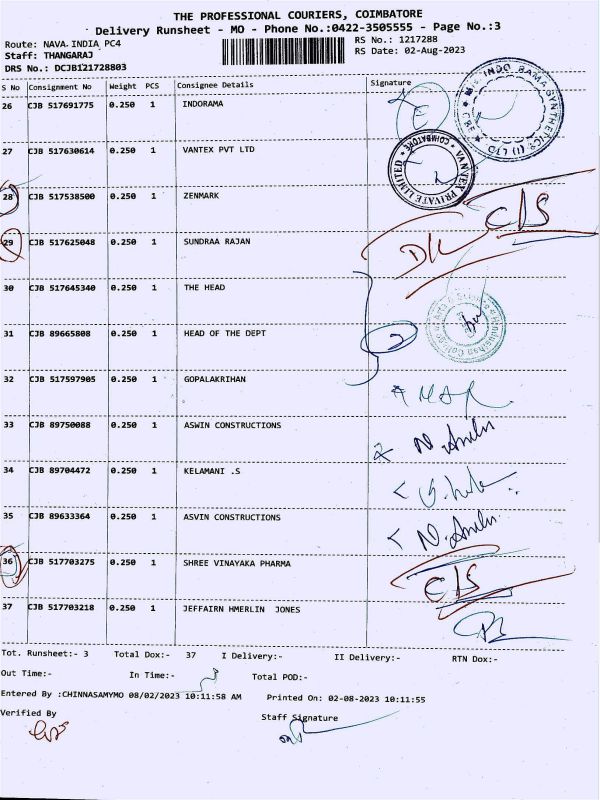 THE PROFESSIONAL COURIERS, COIMBATORE
Delivery Runsheet - MO - Phone No.:0422-3505555 - Page No.:3
Route: NAVA INDIA PC4
RS No.: 1217288
Staff: THANGARAJ
RS Date: 02-Aug-2023
DRS No.: DCJB121728803
S No Consignment No Weight PCS Consignee Details Signature
26 CJB 517691775 0.250 1 INDORAMA
27 CJB 517630614 0.250 1 VANTEX PVT LTD
VANTEX PRIVATE LIMITED COIMBATORE
28 CJB 517538500 0.250 1 ZENMARK
C/S
29 CJB 517625048 0.250 1 SUNDRAA RAJAN
DL
30 CJB 517645340 0.250 1 THE HEAD
31 CJB 89665808 0.250 1 HEAD OF THE DEPT
2
32 CJB 517597905 0.250 1 GOPALAKRIHAN
33 CJB 89750088 0.250 1 ASWIN CONSTRUCTIONS
34 CJB 89704472 0.250 1 KELAMANI .S
35 CJB 89633364 0.250 1 ASVIN CONSTRUCTIONS
36 CJB 517703275 0.250 1 SHREE VINAYAKA PHARMA
C/S
37 CJB 517703218 0.250 1 JEFFAIRN HMERLIN JONES
Tot. Runsheet:- 3 Total Dox:- 37 I Delivery:- II Delivery:- RTN Dox:-
Out Time:- In Time:- Total POD:-
Entered By :CHINNASAMYMO 08/02/2023 10:11:58 AM Printed On: 02-08-2023 10:11:55
Verified By Staff Signature